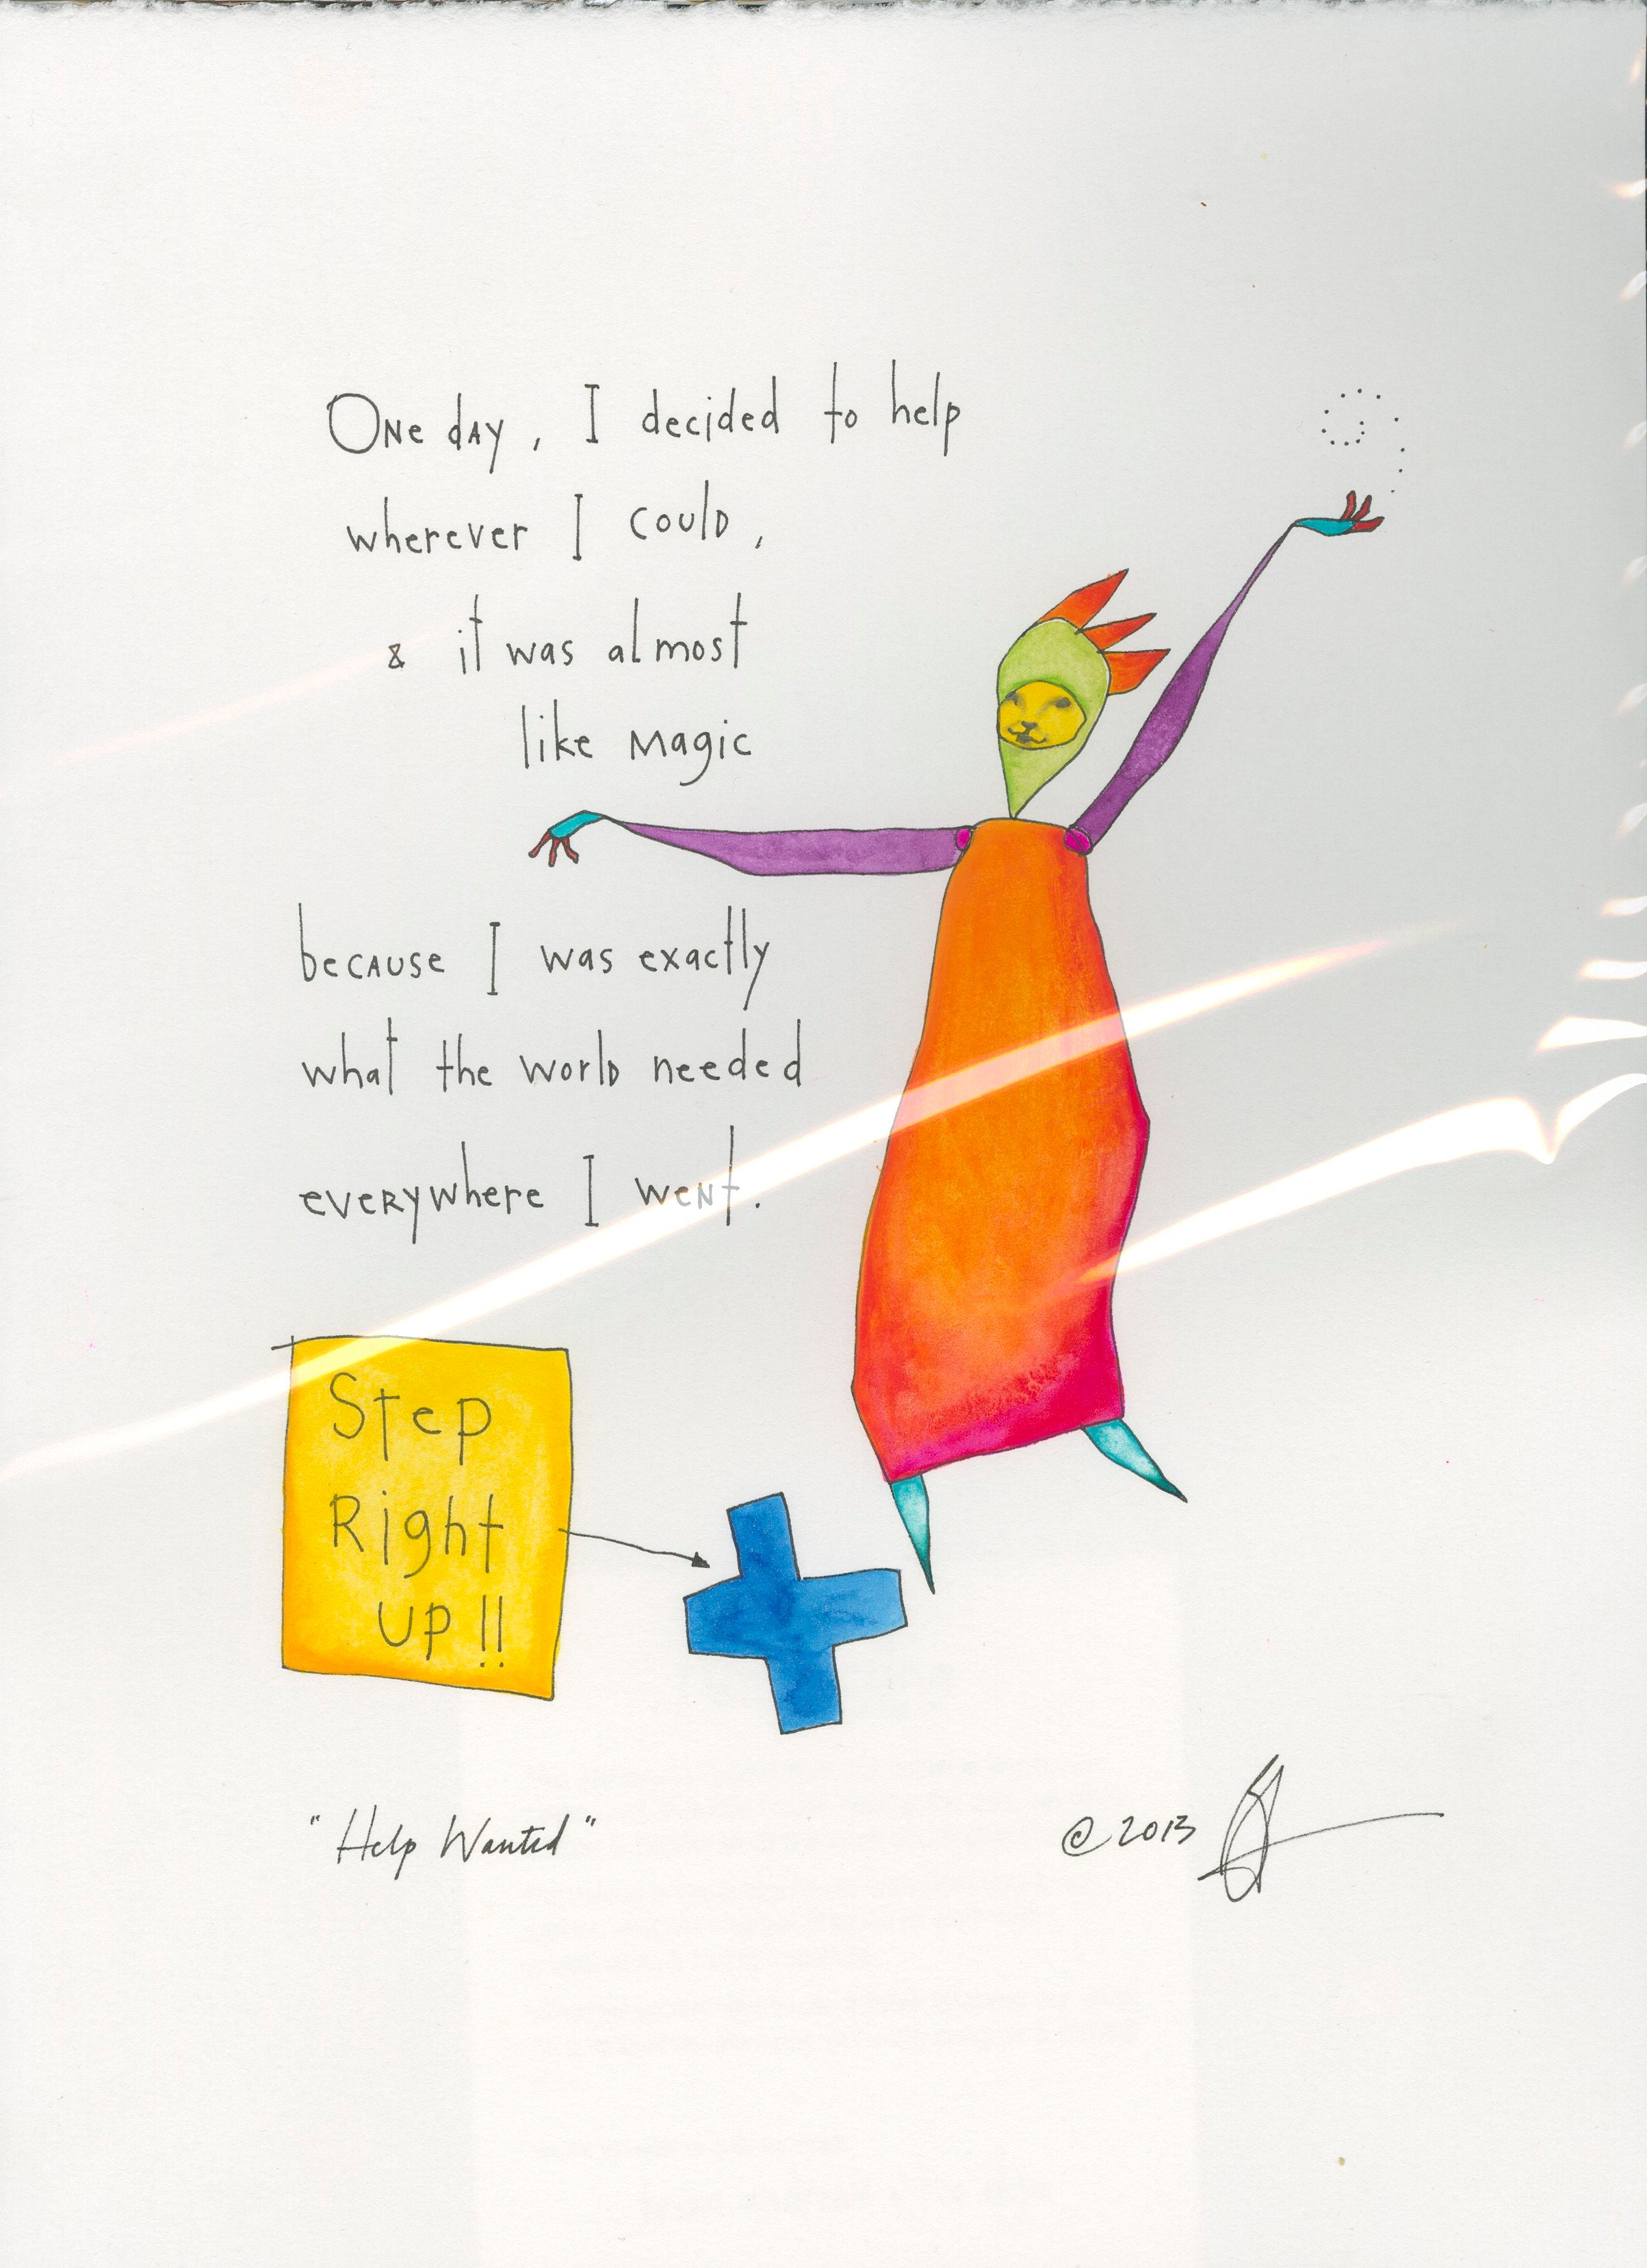 One day, I decided to help
wherever I could,
& it was almost
like magic
because I was exactly
what the world needed
everywhere I went.
Step
Right
up!!
"Help Wanted"
© 2013